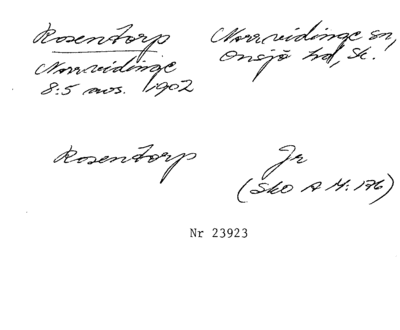 Rosentorp
Norrvidinge sn,
Onsjö hd, Sk.
Norrvidinge
8:5 avs. 1902
Rosentorp
Jr
(Sko A M: 176)
Nr 23923